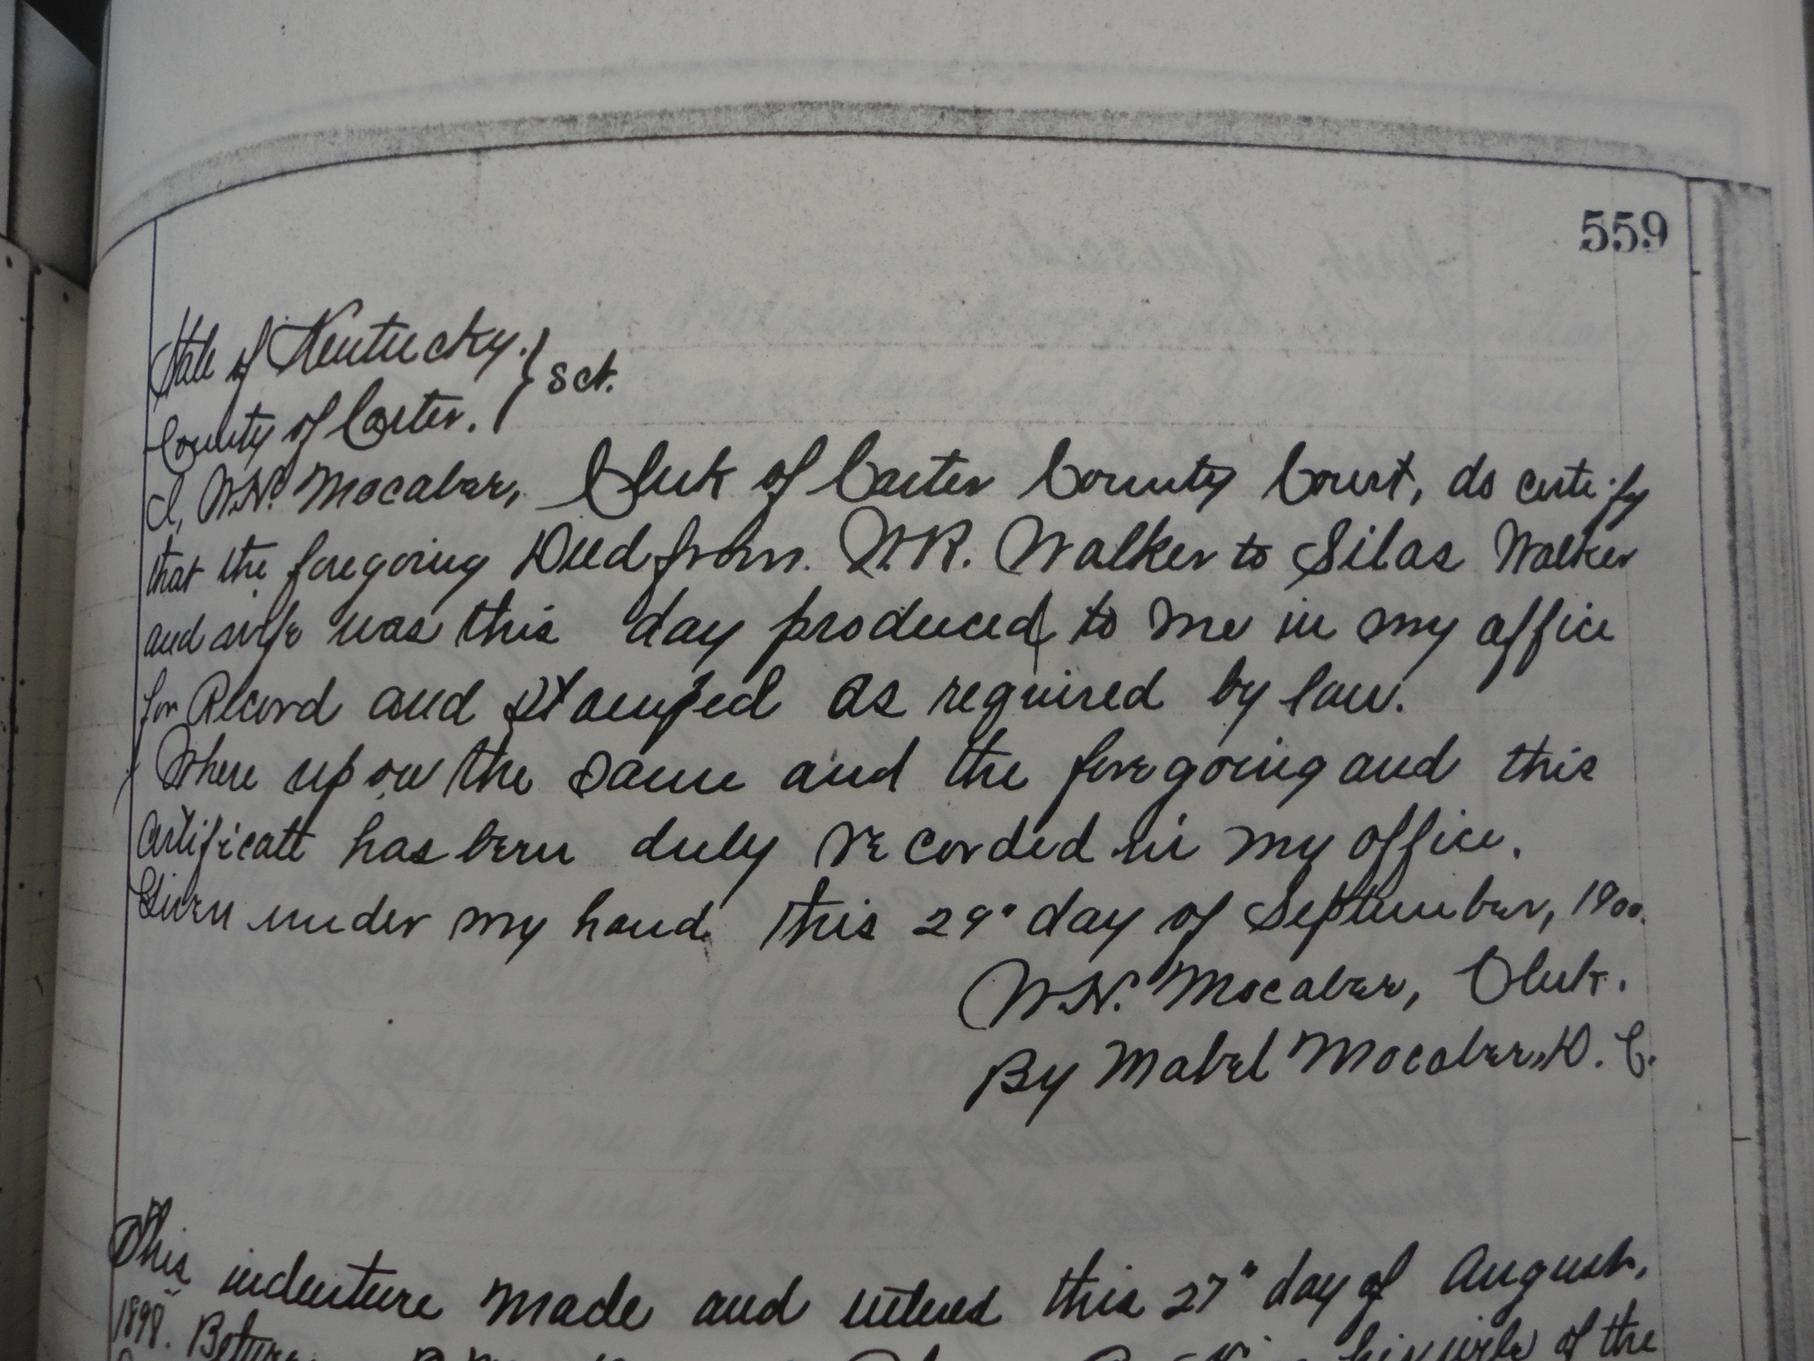 559
State of Kentucky. } Sct.
County of Carter.
I, W.N. Mocabee, Clerk of Carter County Court, do certify
that the foregoing Deed from W.R. Walker to Silas Walker
and wife was this day produced to me in my office
for Record and Stamped as required by law.
Where upon the same and the foregoing and this
Certificate has been duly recorded in my office.
Given under my hand this 29" day of September, 1900.
W.N. Mocabee, Clerk.
By Mabel Mocabee, D. C.
This indenture made and entered this 27" day of August,
1898. his wife of the